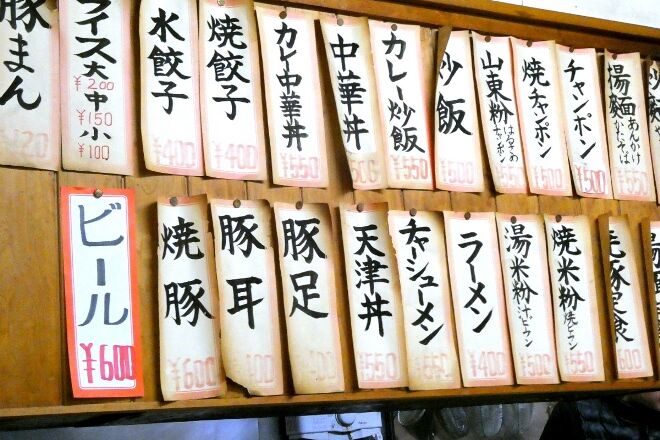 豚まん
ライス 大 ¥200 中 ¥150 小 ¥100
水餃子 ¥400
焼餃子 ¥400
カレー中華丼 ¥550
中華丼
カレー炒飯 ¥550
炒飯 ¥500
山東粉
焼チャンポン ¥500
チャンポン ¥500
揚麵 あんかけかたそば ¥550
ビール ¥600
焼豚 ¥600
豚耳
豚足
天津丼 ¥550
チャーシューメン ¥550
ラーメン ¥400
湯米粉 汁ビーフン ¥500
焼米粉 焼ビーフン ¥550
豚定食 ¥600